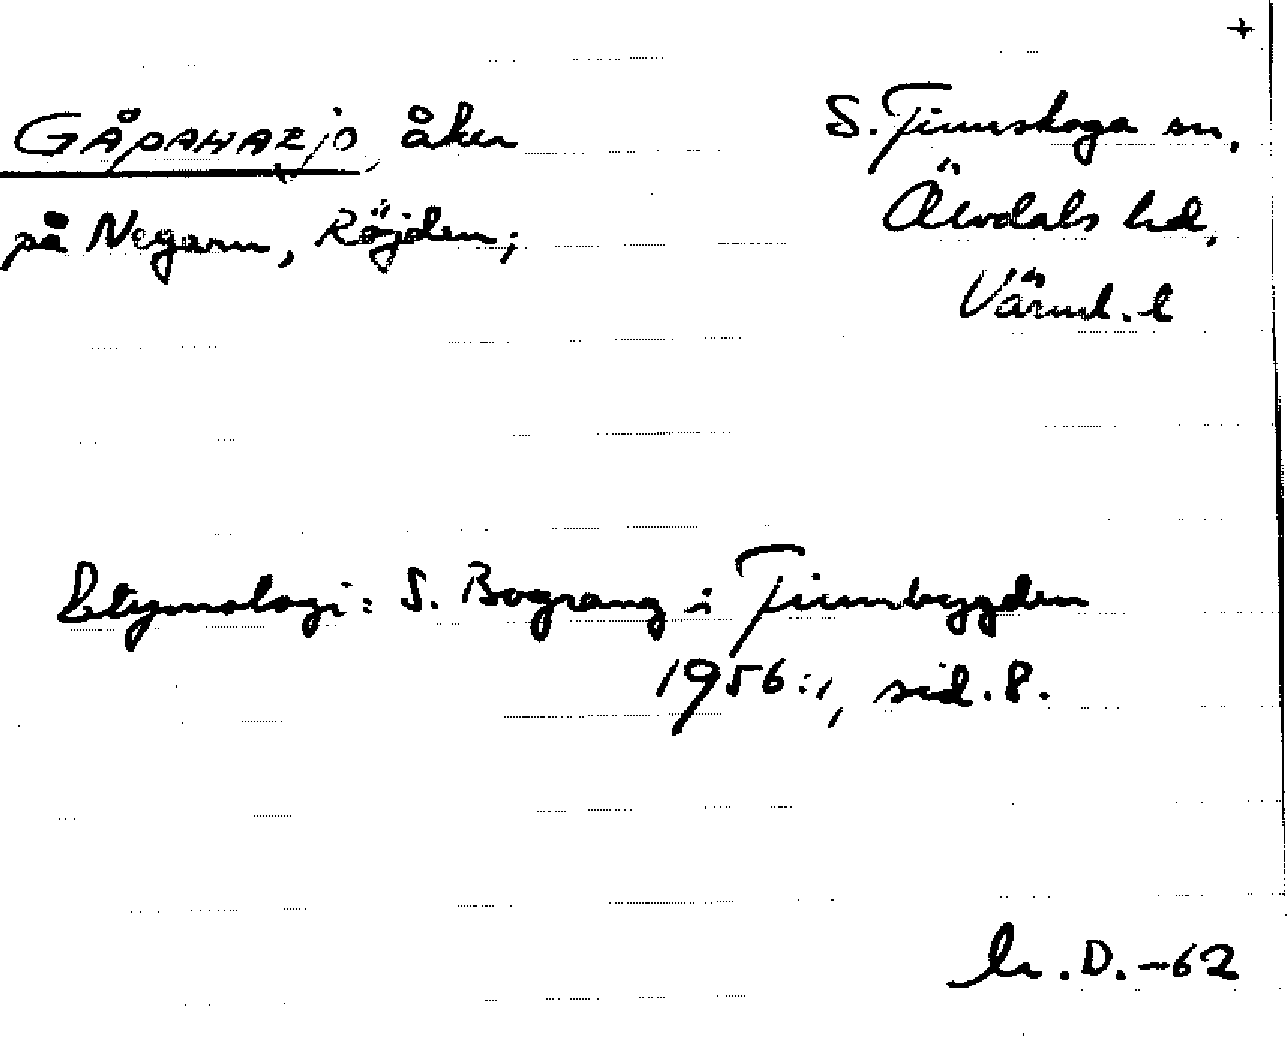 +
GÅPAHAEJO, åker
på Negarn, Röjden;
S. Finnskoga sn,
Älvdals hd,
Värml. l
Etymologi: S. Bograng i Finnbygden
1956:1, sid. 8.
D. -62